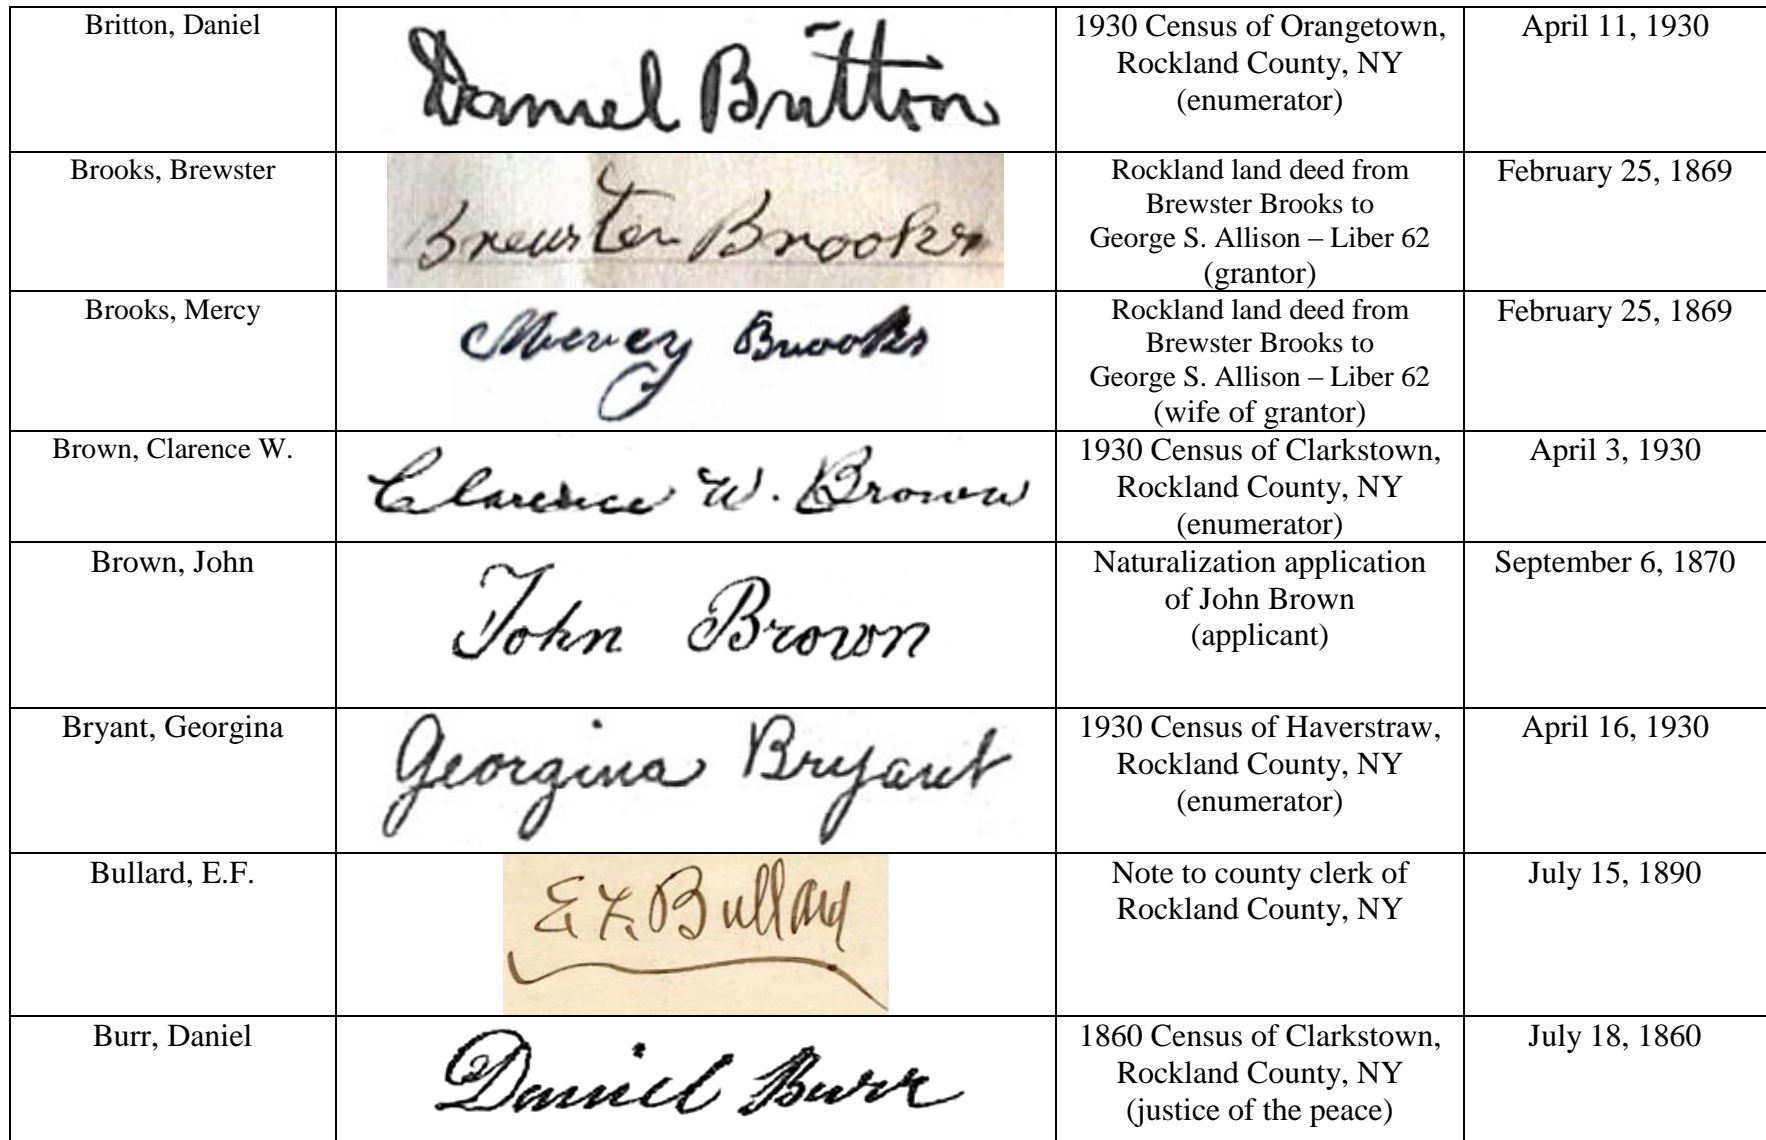 Britton, Daniel
Daniel Britton
1930 Census of Orangetown,
Rockland County, NY
(enumerator)
April 11, 1930
Brooks, Brewster
Brewster Brooks
Rockland land deed from
Brewster Brooks to
George S. Allison – Liber 62
(grantor)
February 25, 1869
Brooks, Mercy
Mercy Brooks
Rockland land deed from
Brewster Brooks to
George S. Allison – Liber 62
(wife of grantor)
February 25, 1869
Brown, Clarence W.
Clarence W. Brown
1930 Census of Clarkstown,
Rockland County, NY
(enumerator)
April 3, 1930
Brown, John
John Brown
Naturalization application
of John Brown
(applicant)
September 6, 1870
Bryant, Georgina
Georgina Bryant
1930 Census of Haverstraw,
Rockland County, NY
(enumerator)
April 16, 1930
Bullard, E.F.
E F. Bullard
Note to county clerk of
Rockland County, NY
July 15, 1890
Burr, Daniel
Daniel Burr
1860 Census of Clarkstown,
Rockland County, NY
(justice of the peace)
July 18, 1860